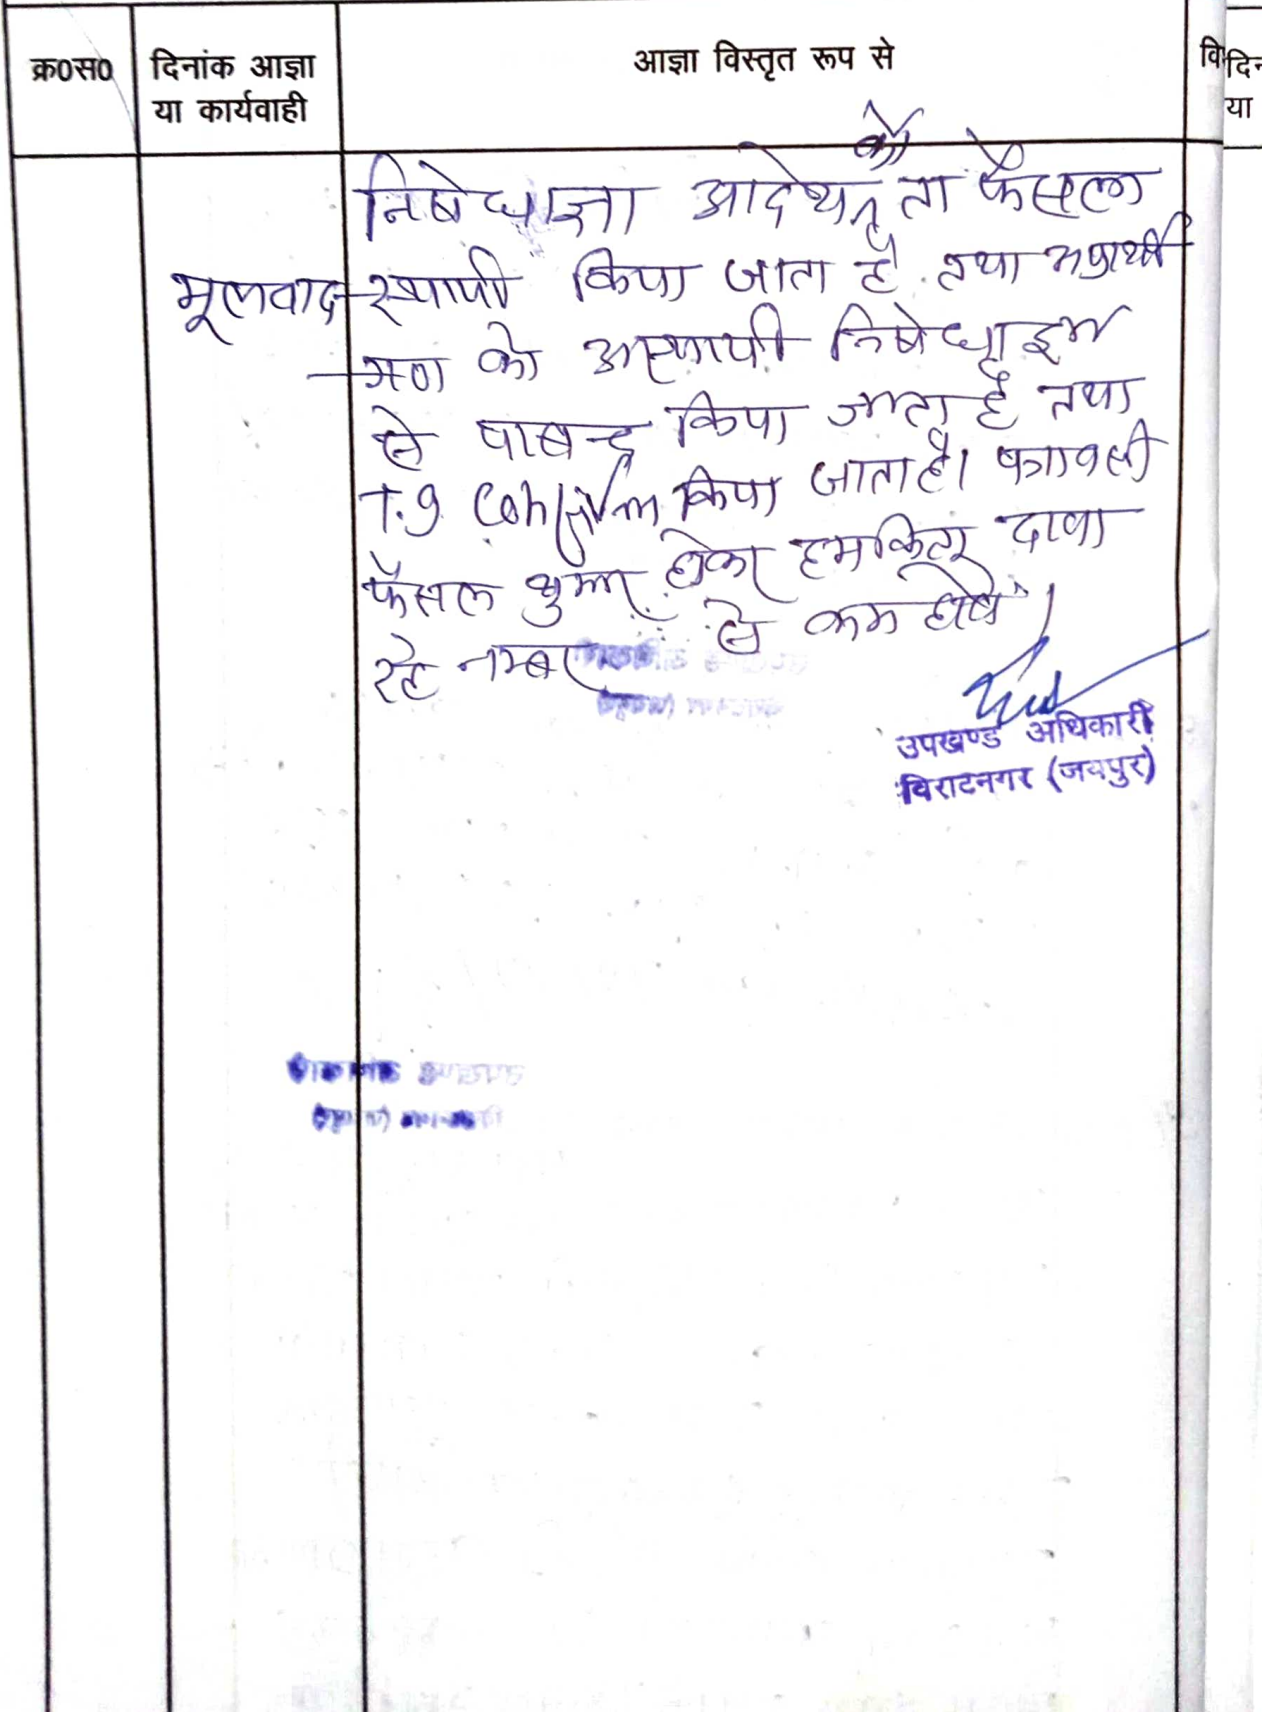 क्र0स0 दिनांक आज्ञा आज्ञा विस्तृत रूप से वि दिन
या कार्यवाही या
को
निषेधाज्ञा आदेश ता फैसला
मूलवाद स्थायी किया जाता है तथा अप्रार्थी
गण को अस्थायी निषेधाज्ञा
से पाबन्द किया जाता है तथा
T.I Confirm किया जाता है। पत्रावली
फैसल शुमार होकर हमकिता दावा
रहे नम्बर से कम होवे।
उपखण्ड अधिकारी
विराटनगर (जयपुर)